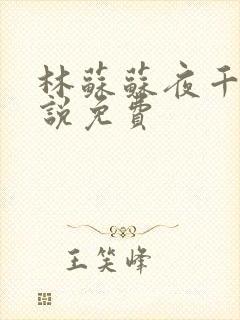 林蘇蘇夜千
說免費
王笑峰